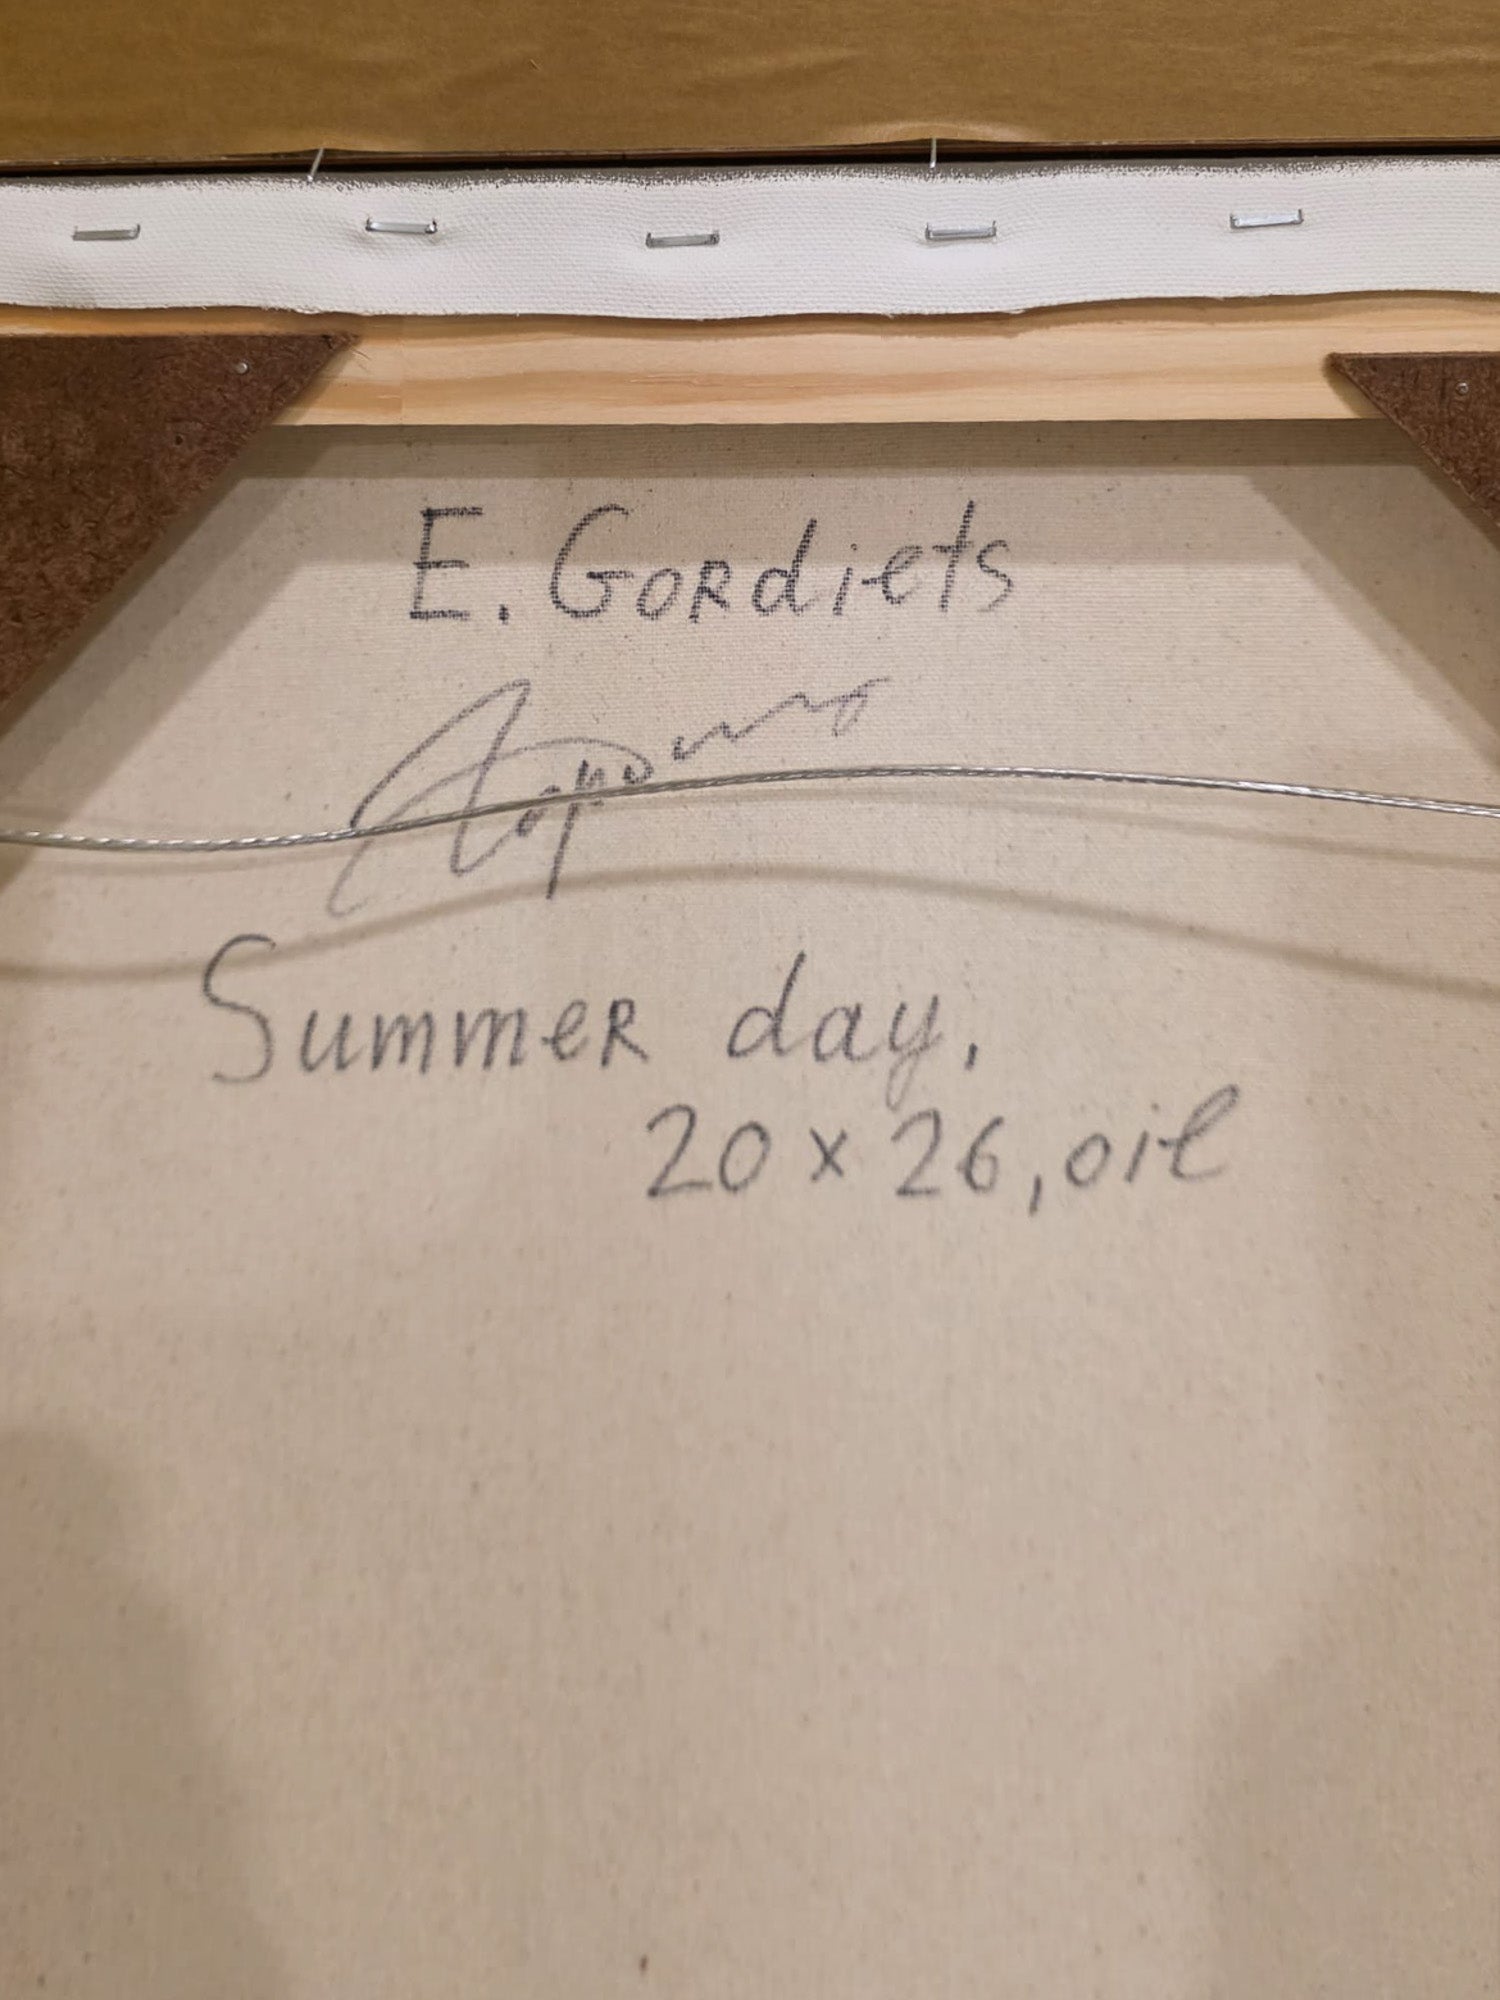 E. Gordiets
Summer day.
20 x 26, oil